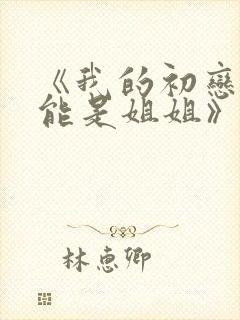 《我的初戀
能是姐姐》
林惠卿